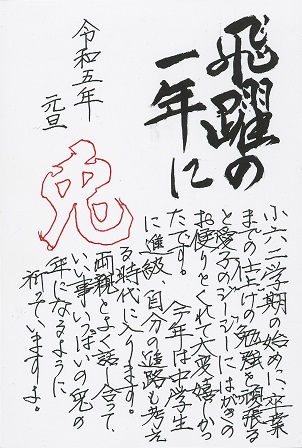 飛躍の
一年に
令和五年
元旦
兎
小六二学期の始めに、卒業
までの仕上げの勉強を頑張る
と愛子のジージーにはがきの
お便りをくれて大変嬉しか
たです。 今年は中学生
に進級、自分の進路も考え
る時代に入ります。
両親とよく話し合って、
いい事いっぱいの兎の
年になるように
祈っていますよ。